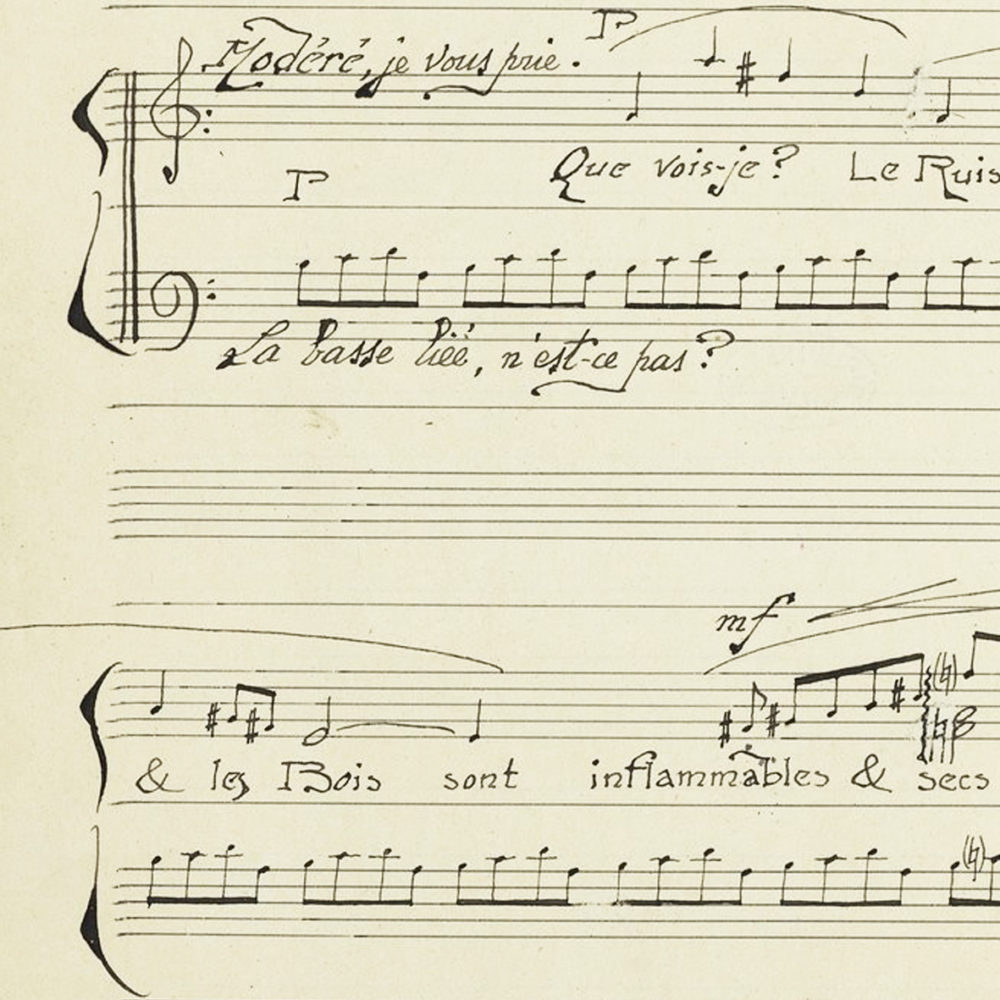 Modéré, je vous prie.
P
Que vois-je? Le Ruis
P
La basse liée, n'est-ce pas?
mf
& les Bois sont inflammables & secs